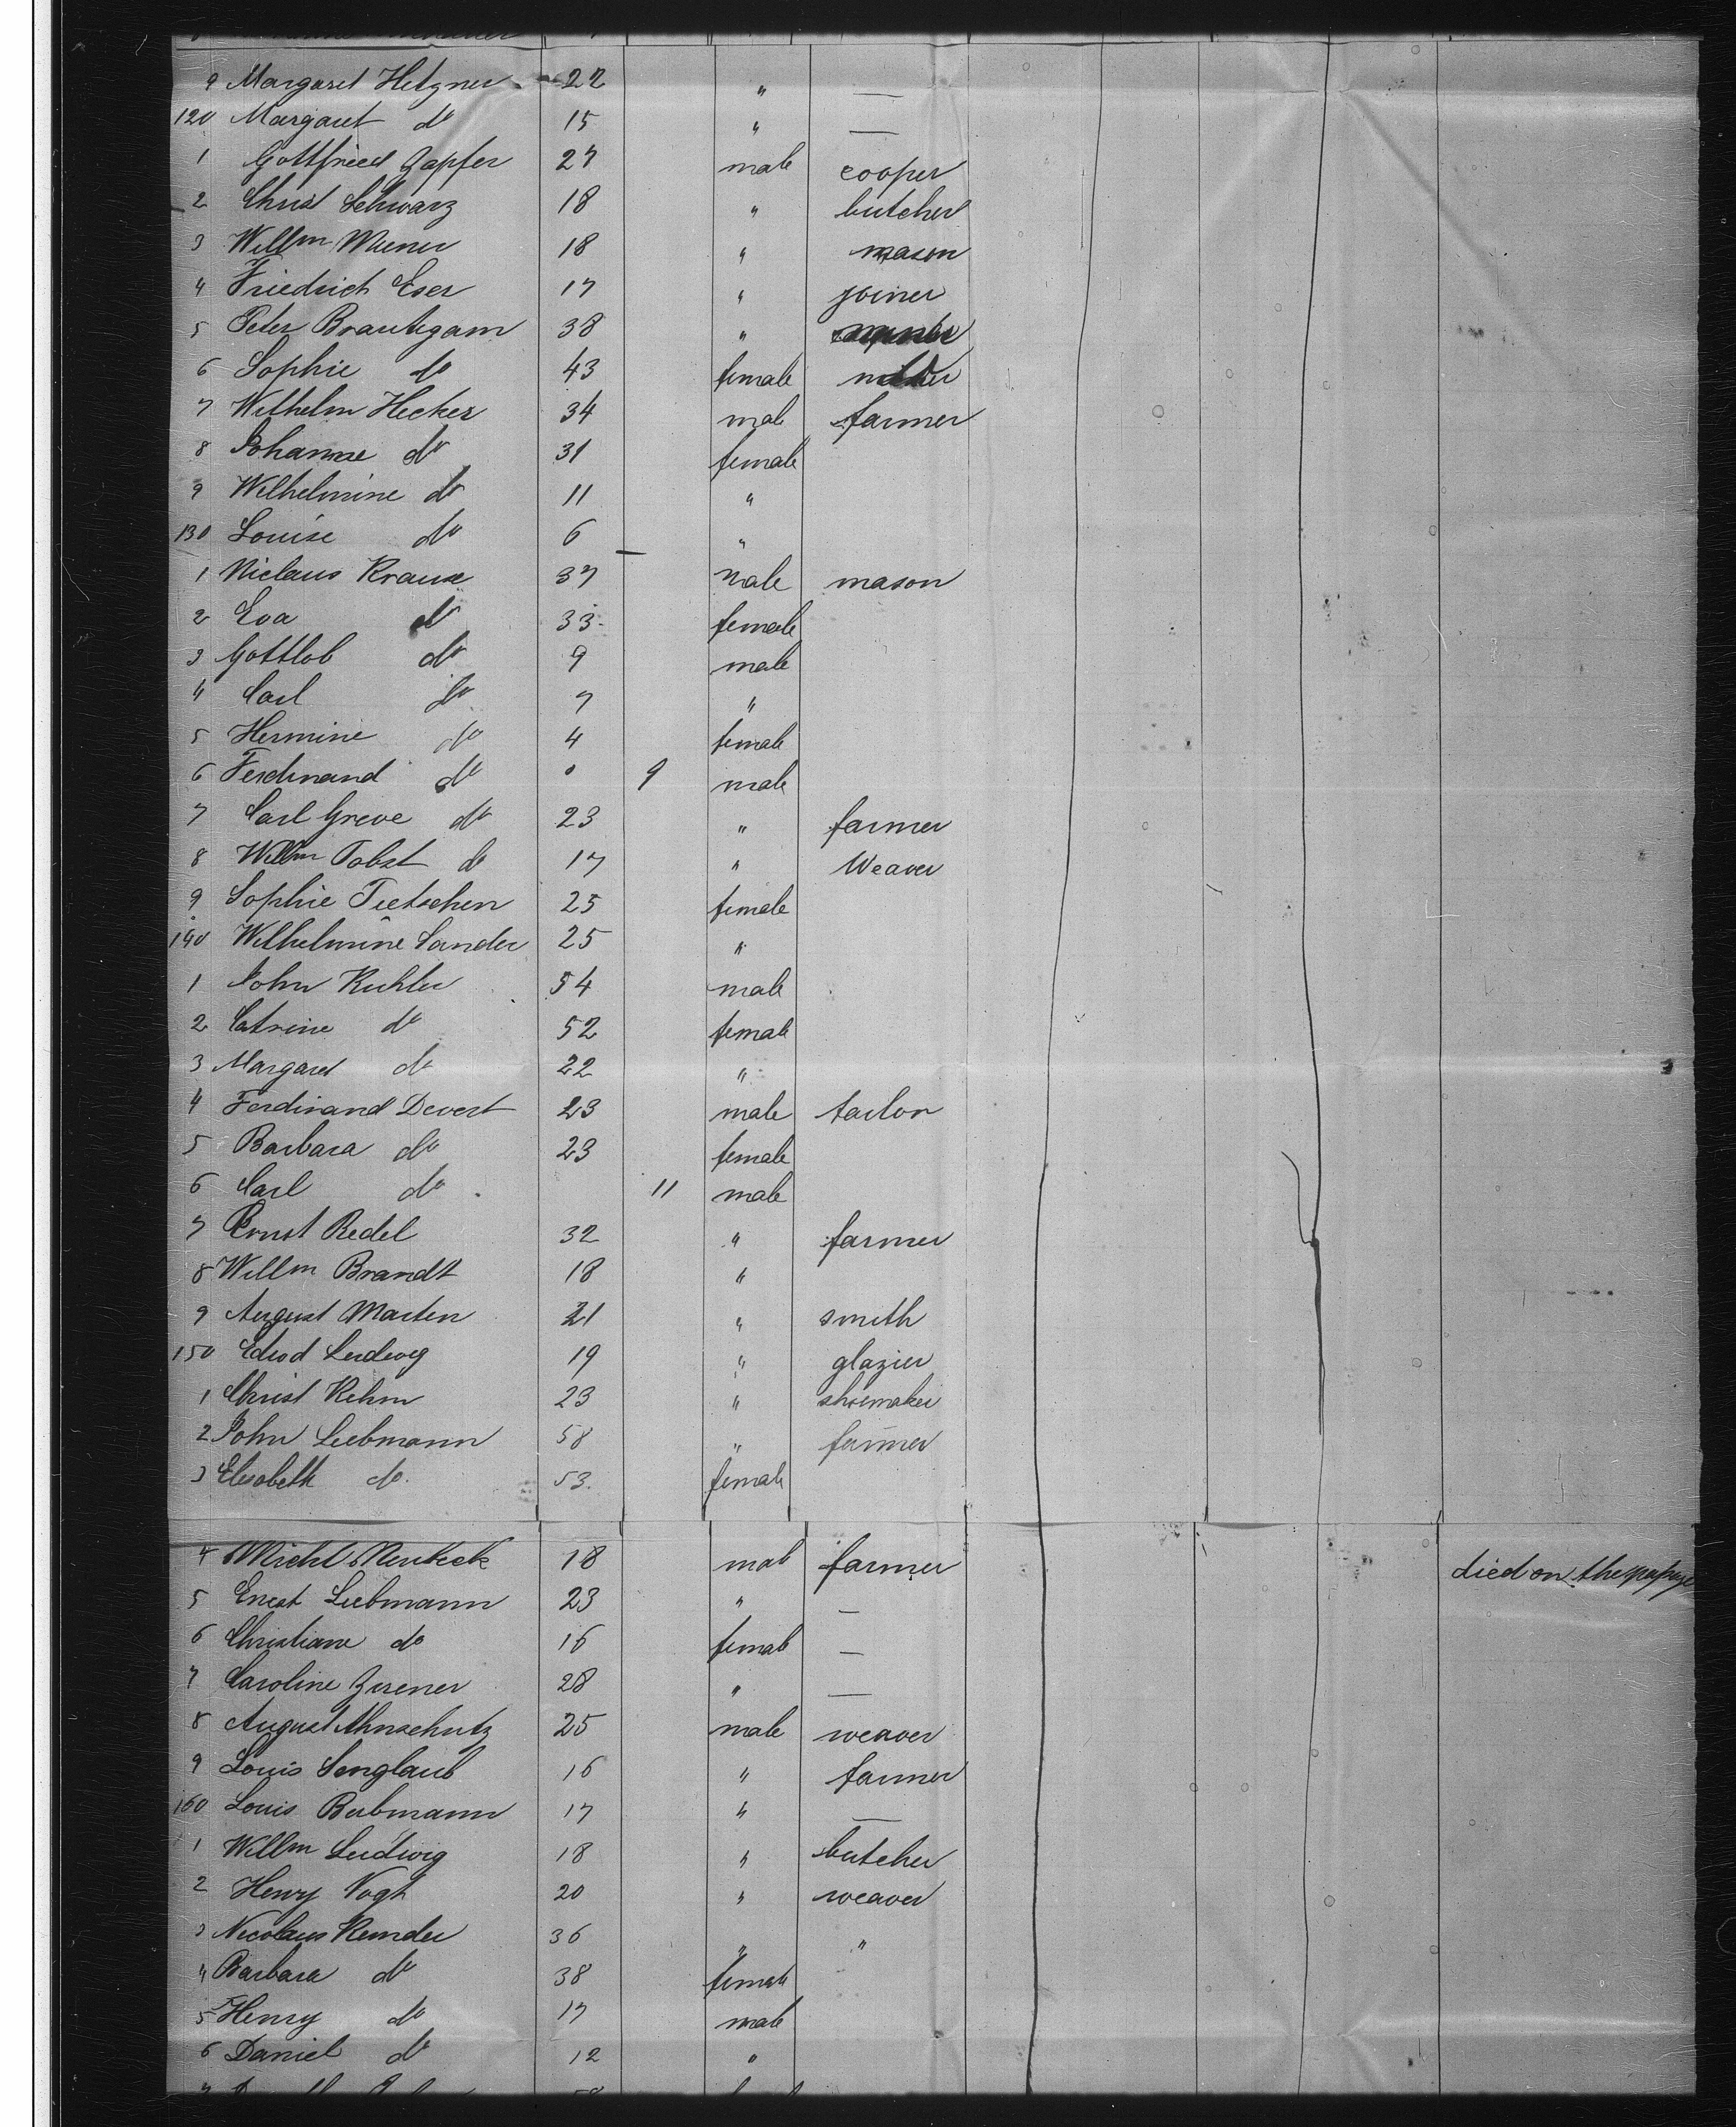 9 Margaret Hetzner 22 " —
120 Margaret do 15 " —
1 Gottfried Zapfer 27 male cooper
2 Christ Schwarz 18 " butcher
3 Willm Wiener 18 " mason
4 Friedrich Eser 17 " joiner
5 Peter Brautigam 38 "
6 Sophie do 43 female
7 Wilhelm Hecker 34 male farmer
8 Johanne do 31 female
9 Wilhelmine do 11 "
130 Louise do 6 "
1 Niclaus Krause 37 male mason
2 Eva do 33 female
3 Gottlob do 9 male
4 Carl do 7 "
5 Hermine do 4 female
6 Ferdinand do 0 9 male
7 Carl Greve do 23 " farmer
8 Willm Tobst do 17 " Weaver
9 Sophie Tietschen 25 female
140 Wilhelmine Sander 25 "
1 John Kuhler 54 male
2 Catrine do 52 female
3 Margaret do 22 "
4 Ferdinand Devert 23 male tailor
5 Barbara do 23 female
6 Carl do 11 male
7 Ernst Redel 32 " farmer
8 Willm Brandt 18 "
9 August Marten 21 " smith
150 Edwd Ludwig 19 " glazier
1 Christ Rehm 23 " shoemaker
2 John Liebmann 58 " farmer
3 Elisabeth do 53 female
4 Michl 18 male farmer died on the passage
5 Ernst Liebmann 23 " —
6 Christiane do 16 female —
7 Caroline Zirener 28 " —
8 August Ahnschutz 25 male weaver
9 Louis Senglaub 16 " farmer
160 Louis Bubmann 17 " —
1 Willm Ludwig 18 " butcher
2 Henry Vogt 20 " weaver
3 Nicolaus Kemder 36 " "
4 Barbara do 38 female
5 Henry do 17 male
6 Daniel do 12 "